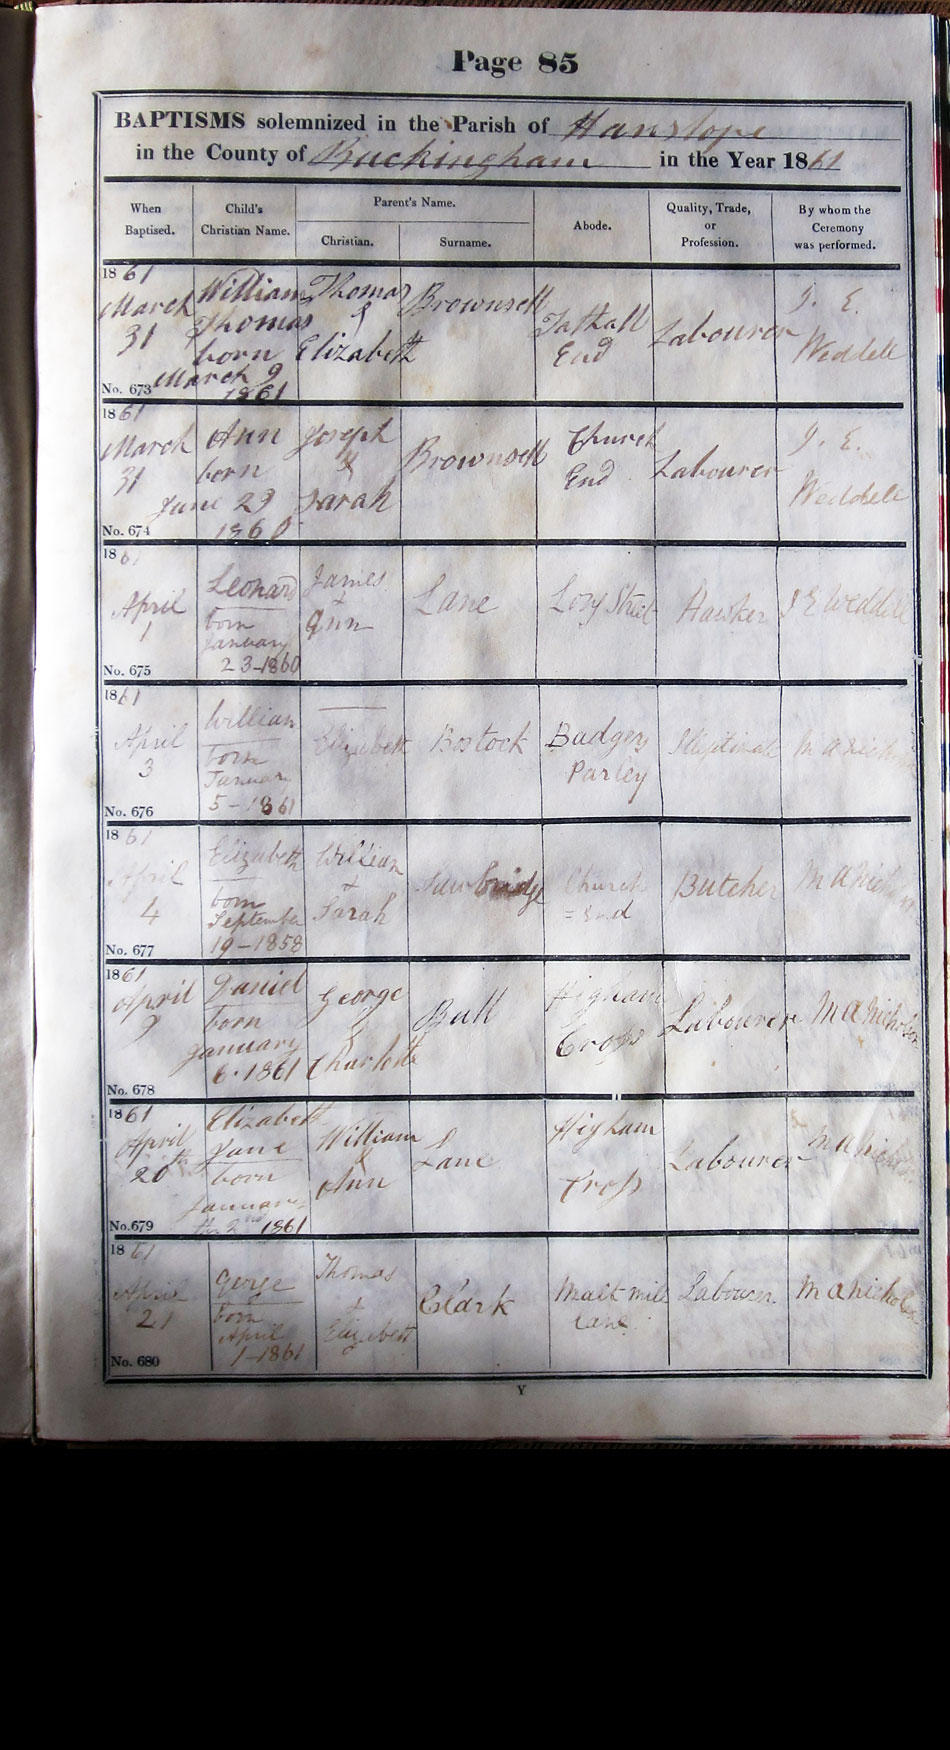 Page 85
BAPTISMS solemnized in the Parish of Hanslope
in the County of Buckingham in the Year 1861
When Baptised.
Child's Christian Name.
Parent's Name.
Christian.
Surname.
Abode.
Quality, Trade, or Profession.
By whom the Ceremony was performed.
1861
March
31
No. 673
William
Thomas
born
March 9
1861
Thomas
&
Elizabeth
Brownsell
Tathall
End
Labourer
J. E.
Weddell
1861
March
31
No. 674
Ann
born
June 29
1860
Joseph
&
Sarah
Brownsell
Church
End
Labourer
J. E.
Weddell
1861
April
1
No. 675
Leonard
born
January
23-1860
James
+
Ann
Lane
Long Street
Hawker
J E Weddell
1861
April
3
No. 676
William
born
January
5-1861
Elizabeth
Bostock
Badgers
M A Nicholson
1861
April
4
No. 677
Elizabeth
born
September
19-1858
William
+
Sarah
Sawbridge
Church
=End
Butcher
M A Nicholson
1861
April
9
No. 678
Daniel
born
January
6.1861
George
&
Charlotte
Bull
Higham
Cross
Labourer
M A Nicholson
1861
April
20th
No. 679
Elizabeth
Jane
born
January
the 2nd 1861
William
&
Ann
Lane
Higham
Cross
Labourer
M A Nicholson
1861
April
21
No. 680
George
born
April
1-1861
Thomas
+
Elizabeth
Clark
Malt mill
Lane
Labourer
M A Nicholson
Y